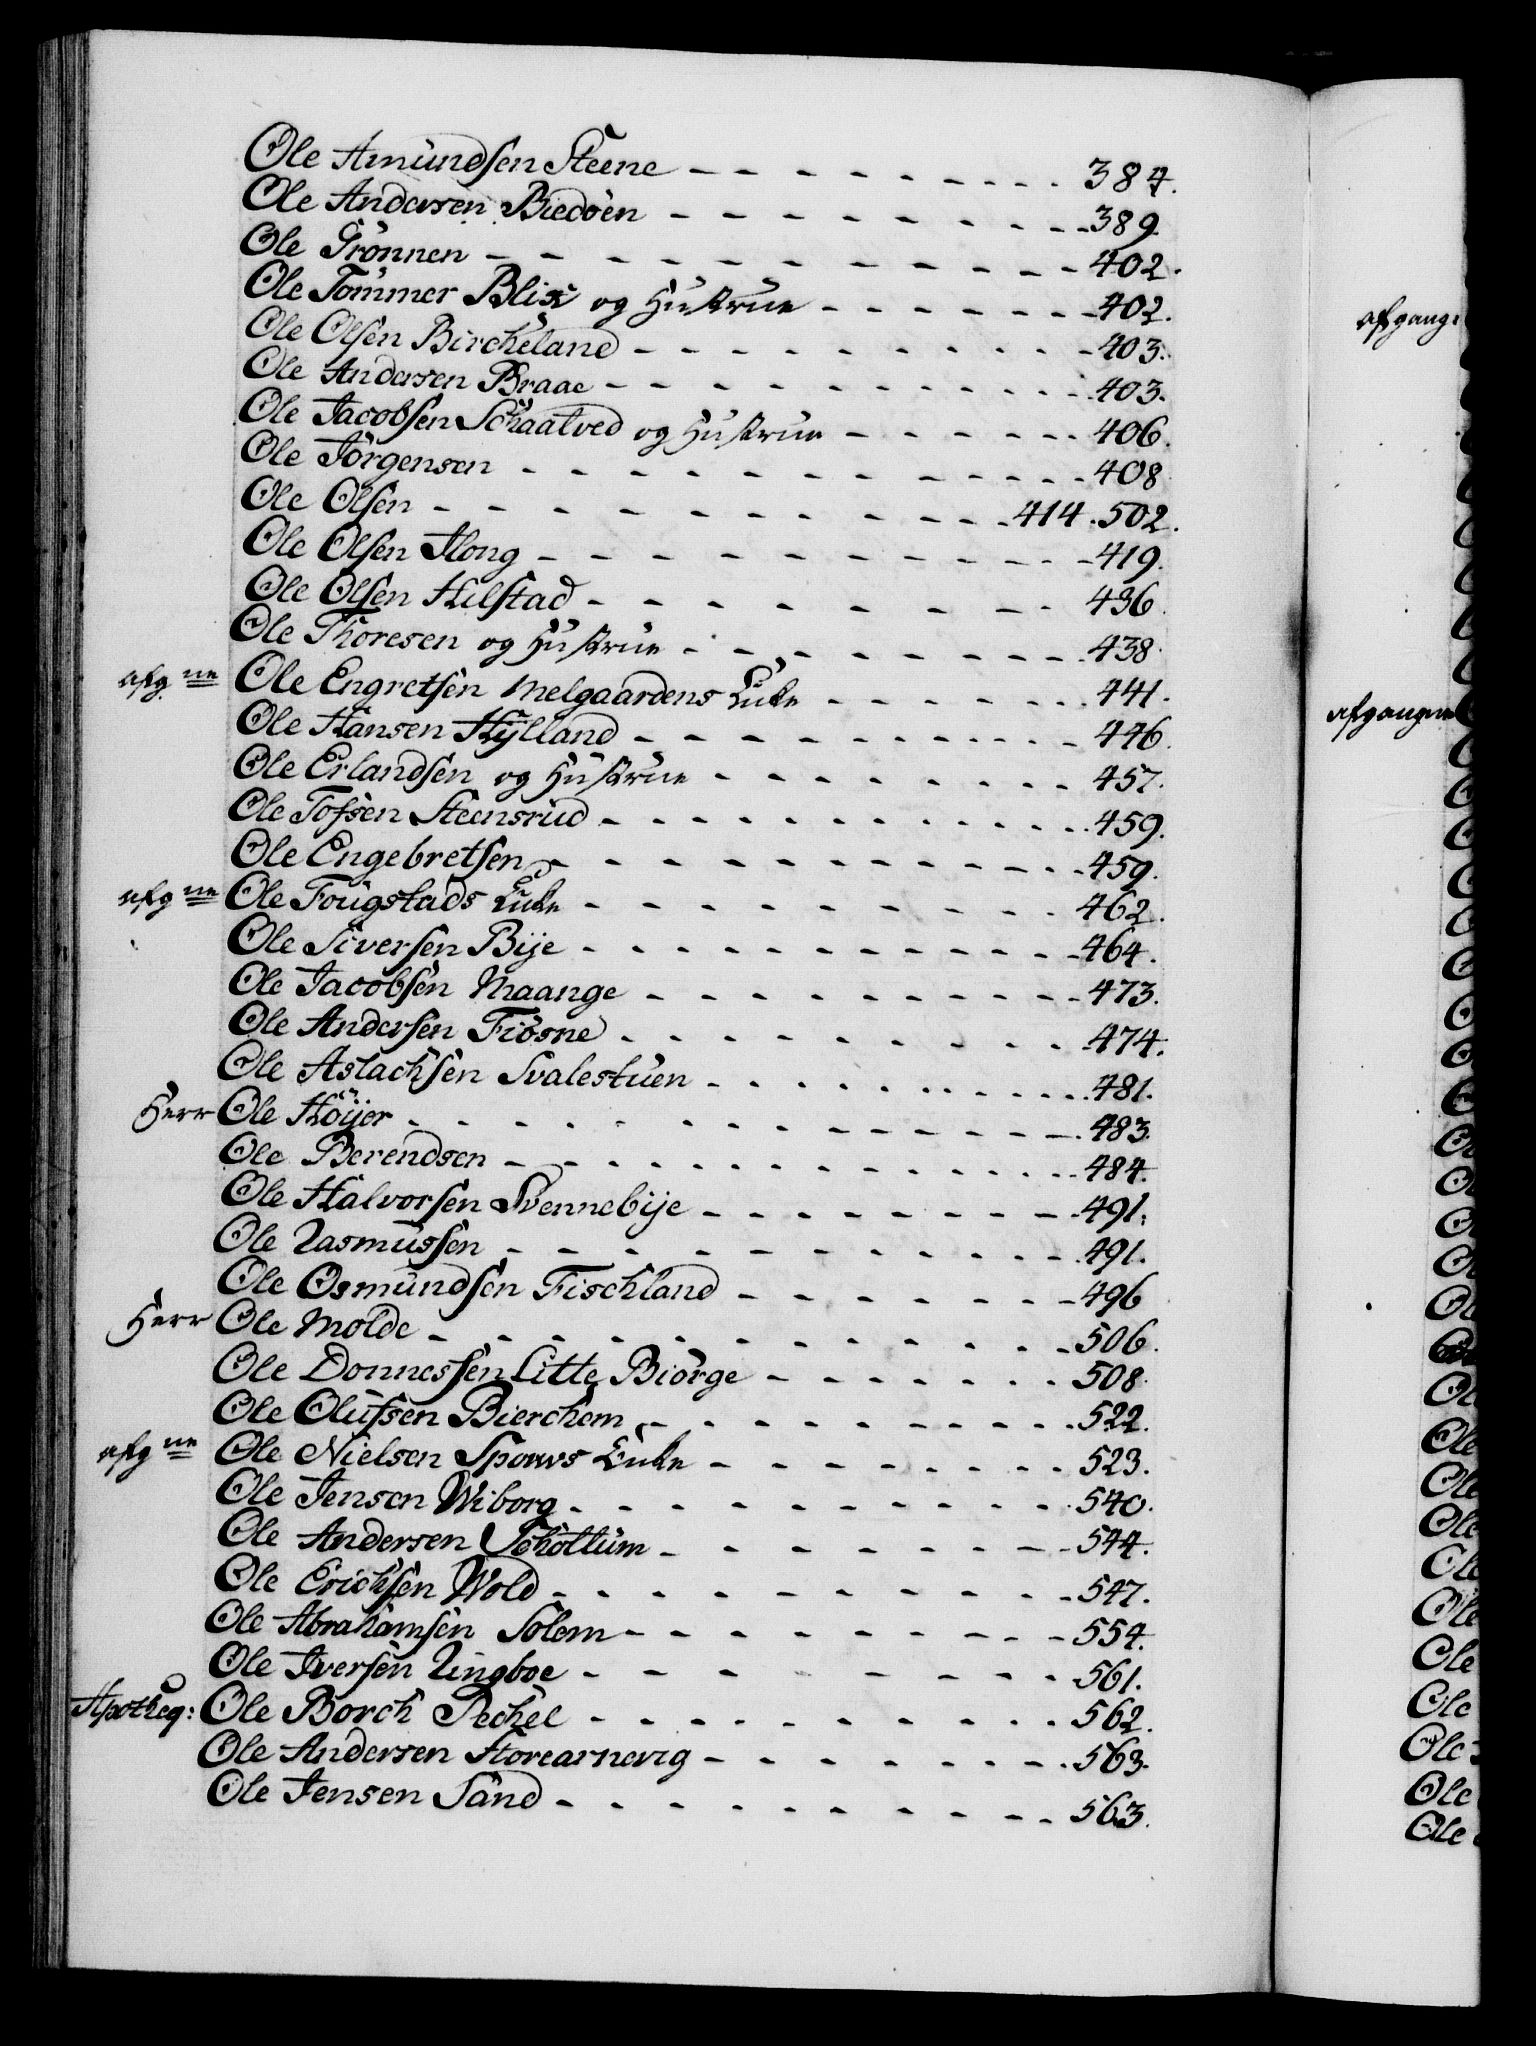 Ole Amundsen Steene - - - - - - - - - - 384.
Ole Andersen Biedöen - - - - - - - - - - 389.
Ole Grönnen - - - - - - - - - - - - 402.
Ole Tommer Blix og Hustrue - - - - - - - 402.
Ole Olsen Bircheland - - - - - - - - - - 403.
Ole Andersen Braae - - - - - - - - - - 403.
Ole Jacobsen Schaatved og Hustrue - - - - - - 406.
Ole Jörgensen - - - - - - - - - - - 408
Ole Olsen - - - - - - - - - - 414. 502.
Ole Olsen Flong - - - - - - - - - - 419.
Ole Olsen Hilstad - - - - - - - - - 436.
Ole Thoresen og Hustrue - - - - - - - - 438.
afg:ne Ole Engretsen Melgaardens Enke - - - - - - 441.
Ole Hansen Hylland - - - - - - - - - - 446.
Ole Erlandsen og Hustrue - - - - - - - - 457.
Ole Tofsen Steensrud - - - - - - - - - - 459.
Ole Engebretsen - - - - - - - - - - 459.
afg:ne Ole Fougstads Enke - - - - - - - - - 462.
Ole Siversen Bije - - - - - - - - - - 464.
Ole Jacobsen Maange - - - - - - - - - 473.
Ole Andersen Fiösne - - - - - - - - - 474.
Ole Aslachsen Svalestuen - - - - - - - - - 481.
Herr Ole Höijer - - - - - - - - - - - - 483.
Ole Berendsen - - - - - - - - - - - 484.
Ole Halvorsen Svennebije - - - - - - - - 491.
Ole Rasmussen - - - - - - - - - - - 491.
Ole Osmundsen Fischland - - - - - - - - 496
Herr Ole Molde - - - - - - - - - - - 506.
Ole Donnessen Litte Biörge - - - - - - - 508.
Ole Olufsen Bierchem - - - - - - - - - 522.
afg:ne Ole Nielsen Spows Enke - - - - - - - - 523.
Ole Jensen Wiborg - - - - - - - - - - 540.
Ole Andersen Schottum - - - - - - - - 544.
Ole Erichsen Wold - - - - - - - - - - 547.
Ole Abrahamsen Solem - - - - - - - - - 554.
Ole Iversen Ringboe - - - - - - - - - 561.
Apotheq: Ole Borch Pechel - - - - - - - - - 562.
Ole Andersen Storearnevig - - - - - - - 563.
Ole Jensen Sand - - - - - - - - - - 563.
afgangne
Ole
Ole
Ole
Ole
Ole
Ole
Ole
Ole
Ole